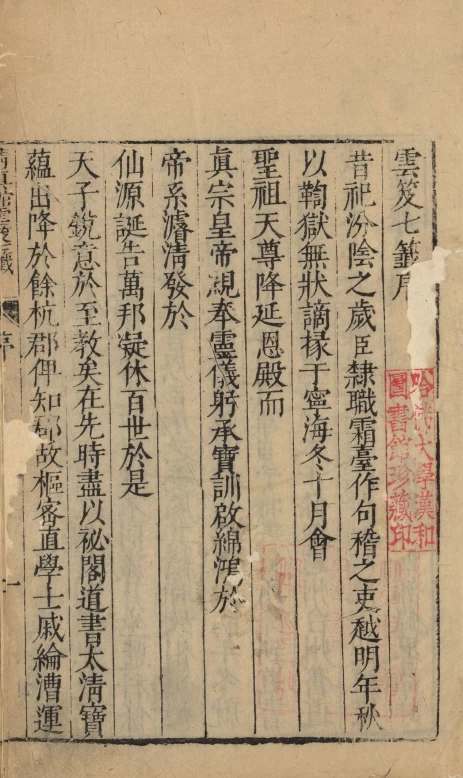 雲笈七籤序
昔祀汾陰之歲臣隸職霜臺作句稽之吏越明年秋
以鞫獄無狀謫掾于寧海冬十月會
聖祖天尊降延恩殿而
眞宗皇帝親奉靈儀躬承寶訓啟綿鴻於
帝系濬清發於
仙源誕告萬邦凝休百世於是
天子銳意於至教矣在先時盡以祕閣道書太清寶
蘊出降於餘杭郡俾知郡故樞密直學士戚綸漕運
序
一
哈佛大學漢和
圖書館珍藏印